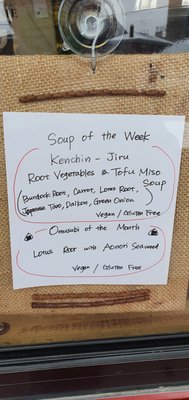 Soup of the Week
Kenchin - Jiru
Root Vegetables & Tofu Miso
Soup
(Burdock Root, Carrot, Lotus Root,
Japanese Taro, Daikon, Green Onion)
Vegan / Gluten Free
Omusubi of the Month
Lotus Root with Aonori Seaweed
Vegan / Gluten Free